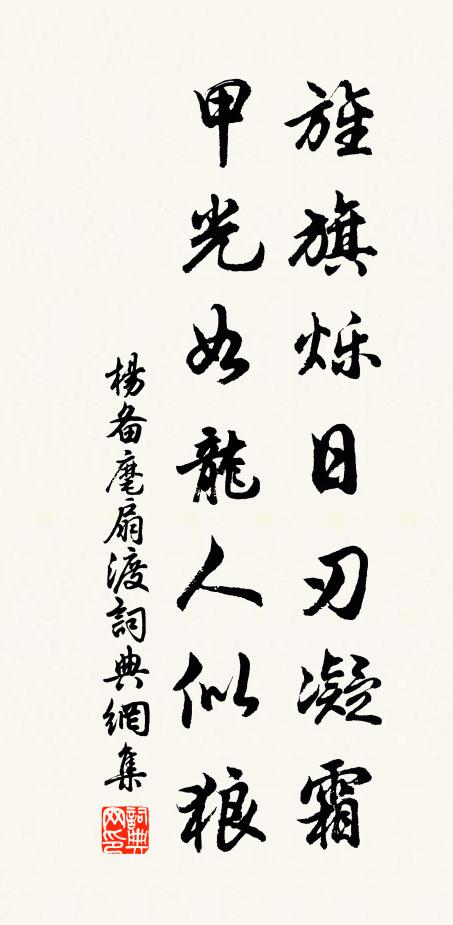 旌旗烁日刃凝霜
甲光如龍人似狼
楊备麾扇渡詞典網集
詞典网印